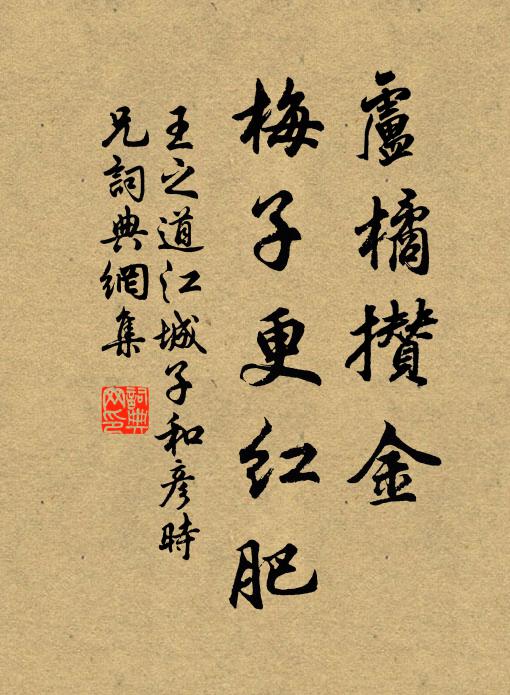 盧橘攢金
梅子更紅肥
王之道江城子和彥時
兄詞典網集
詞典
网印